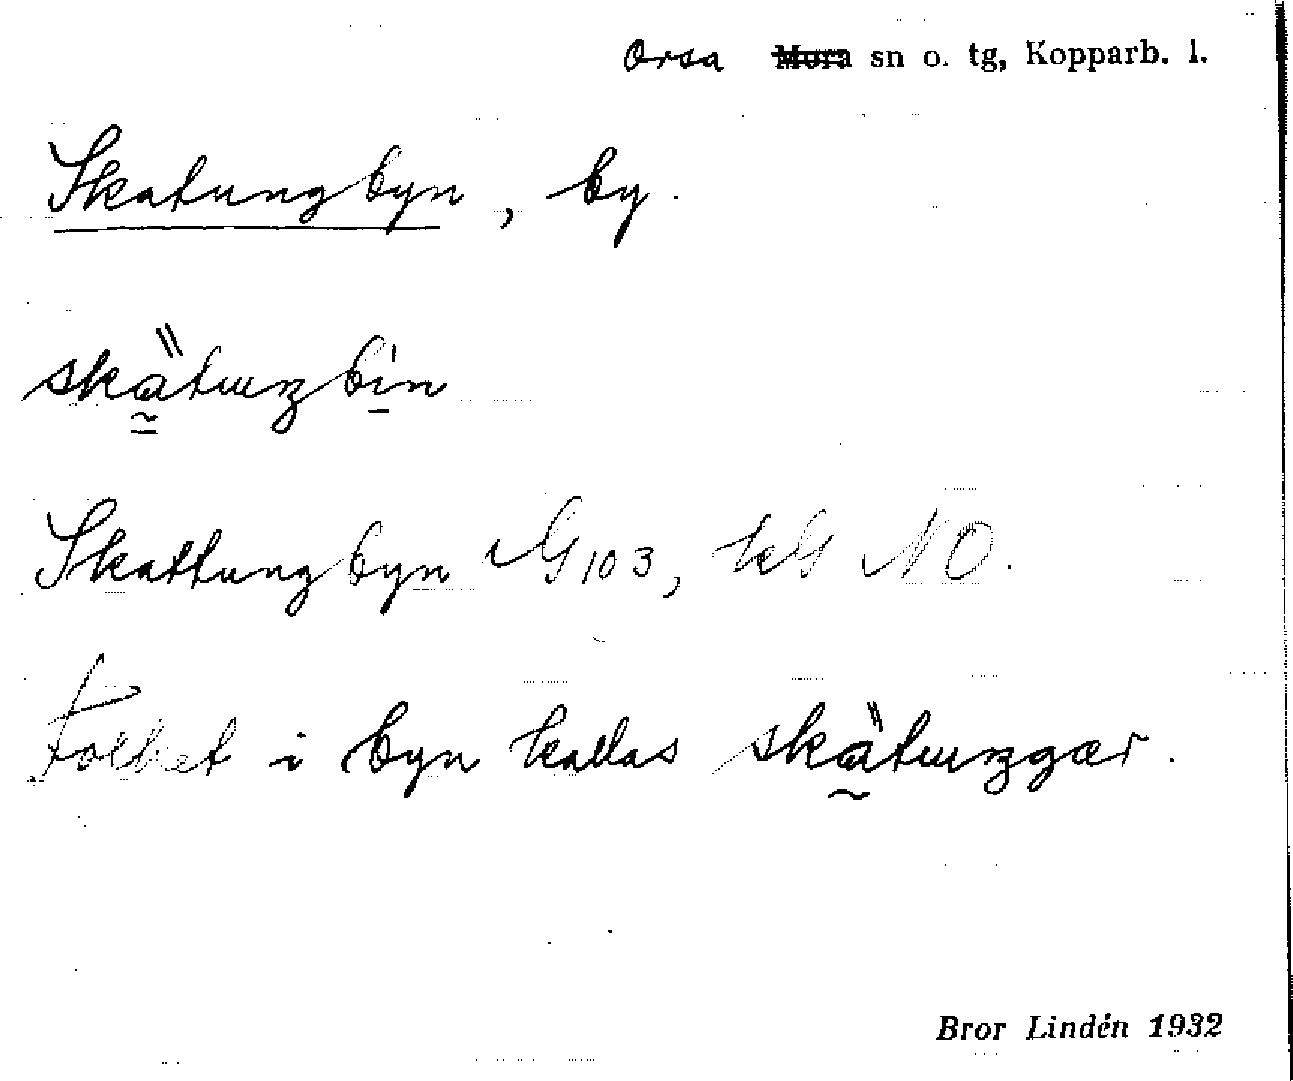 Orsa ~~Mora~~ sn o. tg, Kopparb. l.
Skatungbyn, by.
skätuŋbin
Skattungbyn G 103, kG NO.
Folket i byn kallas skätuŋgar.
Bror Lindén 1932